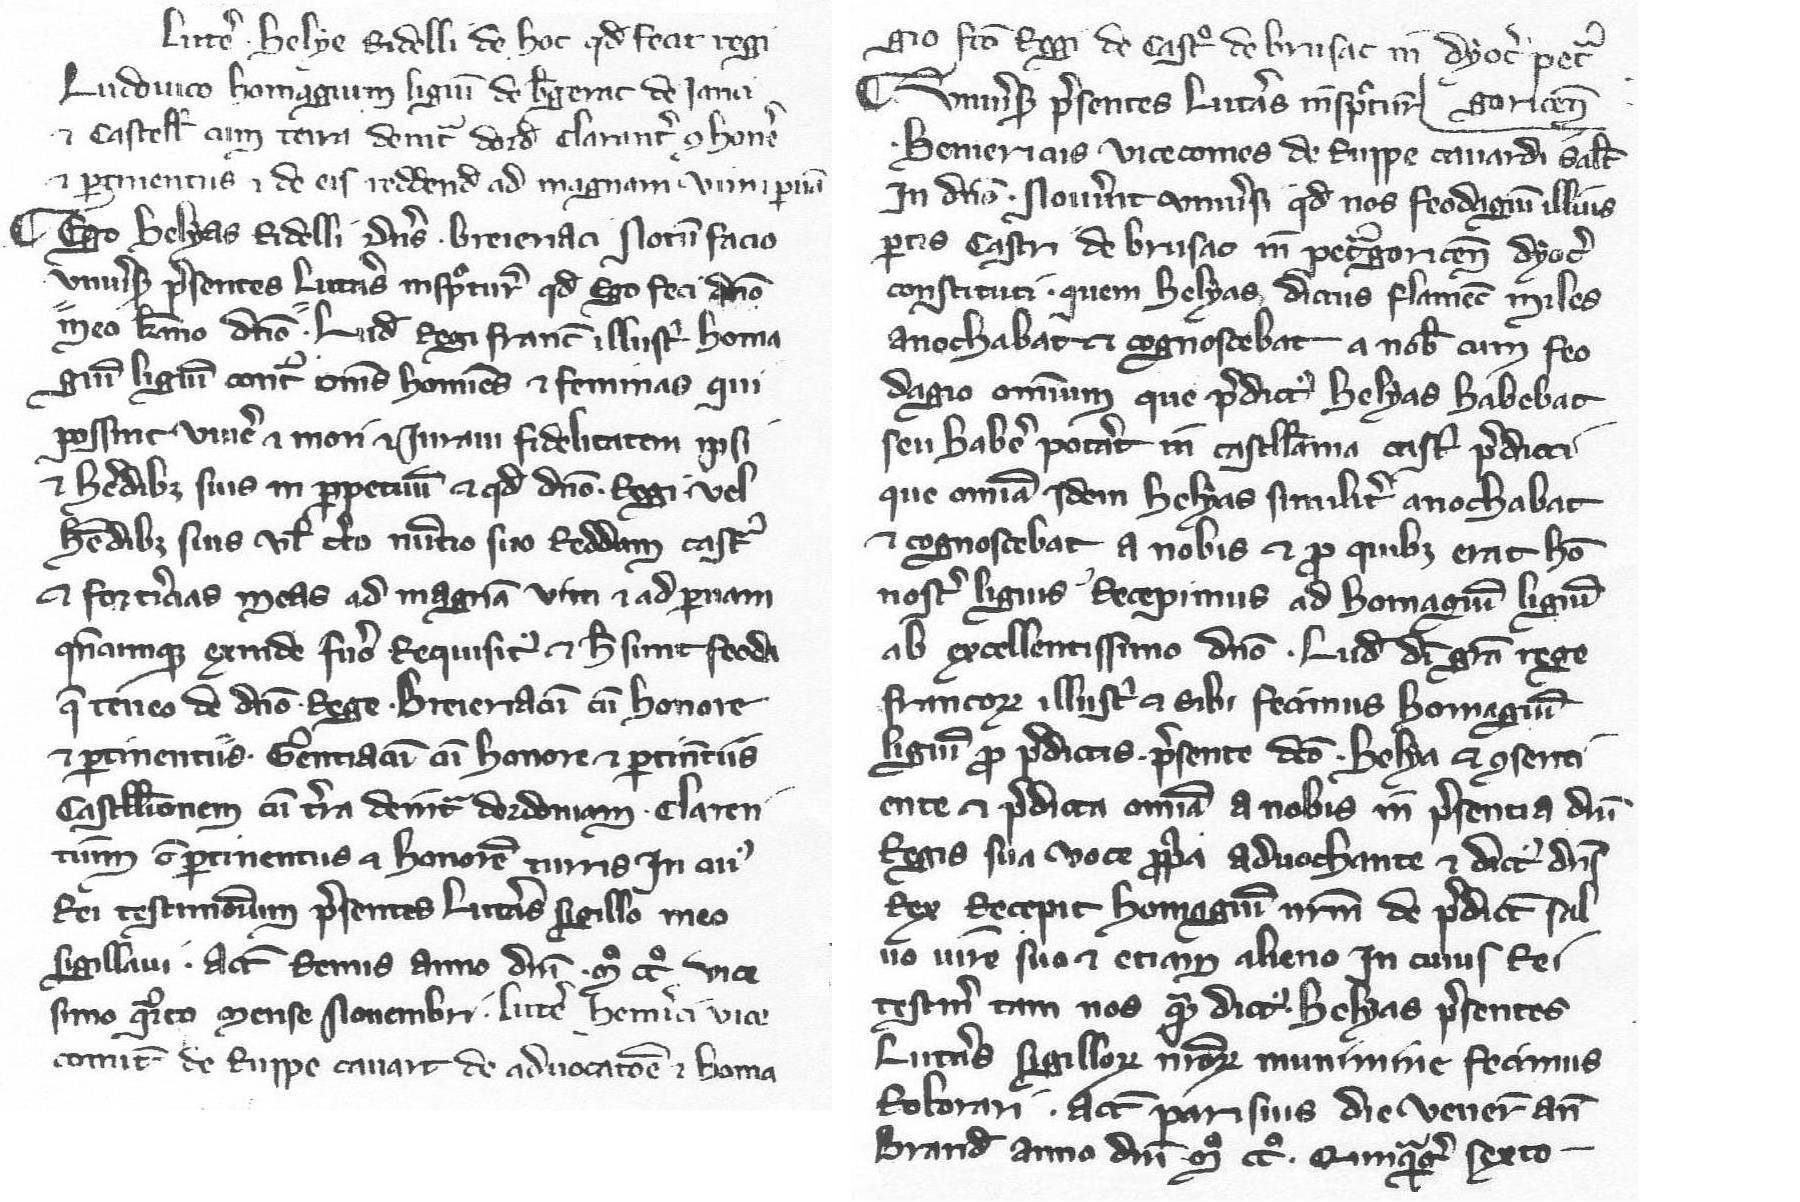 Litte͛ · helye Ridelli de hoc qd̄ fecit regi
Ludouico homagium ligiū de b̄gerac de Janci
⁊ Castell̄ cum terra deuit͛ dord̄ Clarent͛ ꝯ honē
⁊ ꝑtinentiis ⁊ de eis reddend̄ ad magnam vim ⁊ ꝑuā
Ego helyas Ridelli dn̄s · breieriaci Notū facio
vniu͛sis p͛sentes Litt͛as insp͛ctur͛ qd̄ Ego feci dn̄o
meo kmo dn̄o · Lud̄ Regi franc̄ illust͛ homa
giū ligiū cont͛ om̄s homīes ⁊ feminas qui
possint viue͛ ⁊ mori ⁊ Juraui fidelitatem ipsi
⁊ he͛dibꝫ suis in ꝑpetuū ⁊ qd̄ dn̄o · Regi · vel
he͛dibꝫ suis vl̄ c͛to nūtio suo Reddam cast͛
⁊ fort͛icias meas ad magnā vim ⁊ ad ꝑuam
qn̄cumqꝫ exinde fue͛o Requisit᾿ ⁊ h̄ sunt feoda
q̄ teneo de dn̄o · Rege · Breieriacū cū honore
⁊ ꝑtinentiis · Gentiacū cū honore ⁊ ꝑtinētiis
Castell̄ionem cū t͛ra deuit͛ dordoniam · Claren
tium c̄ ꝑtinentiis ⁊ honorē turris In cui᾿
Rei testimōium p͛sentes Litt͛as sigillo meo
sigillaui · Act̄ Remis anno dn̄i · mͦ ccͦ vice
simo q͛rto mense Nouembri · litte͛ hem͛ici vice
comit͛ de Ruppe cauart de aduocatōe ⁊ homa
gio fc̄o Regi de Cast͛o de brusac in dyoc͛ pet͛
goricen̄
Vniu͛sis p͛sentes Litt͛as insp͛ctur͛
· Hemericus vicecomes de Ruppe cauardi salt̄
In dn̄o · Nouer͛int vniu͛si qd̄ nos feodagiū illius
ꝑtis Castri de brusac in pet͛goricen̄ dyoc͛
constituti · quem helyas dictus flamenc̄ miles
auochabat ⁊ cognoscebat a nob̄ cum feo
dagio omnium que p͛dict᾿ helyas habebat
seu habe͛ pot͛at in castell̄ania cast͛ p͛dicti
que omīa Idem helyas similit͛ auochabat
⁊ cognoscebat a nobis ⁊ ꝓ quibꝫ erat hō
nost͛ ligius Recepimus ad homagiū ligiū
ab excellentissimo dn̄o · Lud̄ dī gr̄a rege
francoꝝ illust͛ ⁊ sibi fecimus homagiū
ligiū ꝓ p͛dictis · p͛sente dc̄o · helya ⁊ ꝯsenti
ente ⁊ p͛dicta omīa a nobis in p͛sentia dn̄i
Regis sua voce ꝓp͛a aduochante ⁊ dict᾿ dn̄s
Rex Recepit homagiū nr̄m de p͛dict̄ sal
uo iure suo ⁊ etiam alieno In cuius Rei
testim͛ tam nos q͛ dict᾿ · helyas p͛sentes
Litt͛as sigilloꝝ nr̄oꝝ munimine fecimus
Roborari · Act̄ parisius die vener̄ an̄
Brand̄ anno dn̄i mͦ ccͦ · Quinq͛g͛ sexto